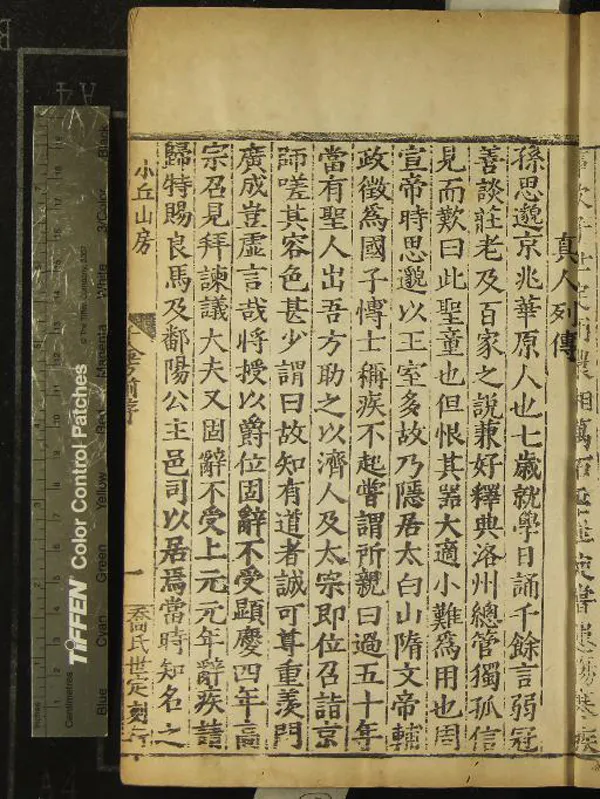 真人列傳
孫思邈京兆華原人也七歲就學日誦千餘言弱冠
善談莊老及百家之說兼好釋典洛州總管獨孤信
見而歎曰此聖童也但恨其器大適小難爲用也周
宣帝時思邈以王室多故乃隱居太白山隋文帝輔
政徵爲國子博士稱疾不起嘗謂所親曰過五十年
當有聖人出吾方助之以濟人及太宗即位召詣京
師嗟其容色甚少謂曰故知有道者誠可尊重羨門
廣成豈虛言哉將授以爵位固辭不受顯慶四年高
宗召見拜諫議大夫又固辭不受上元元年辭疾請
歸特賜良馬及鄱陽公主邑司以居焉當時知名之
小丘山房
一
喬氏世定刻
TIFFEN Color Control Patches
Centimetres
Inches
Blue
Cyan
Green
Yellow
Red
Magenta
White
3/Color
Black